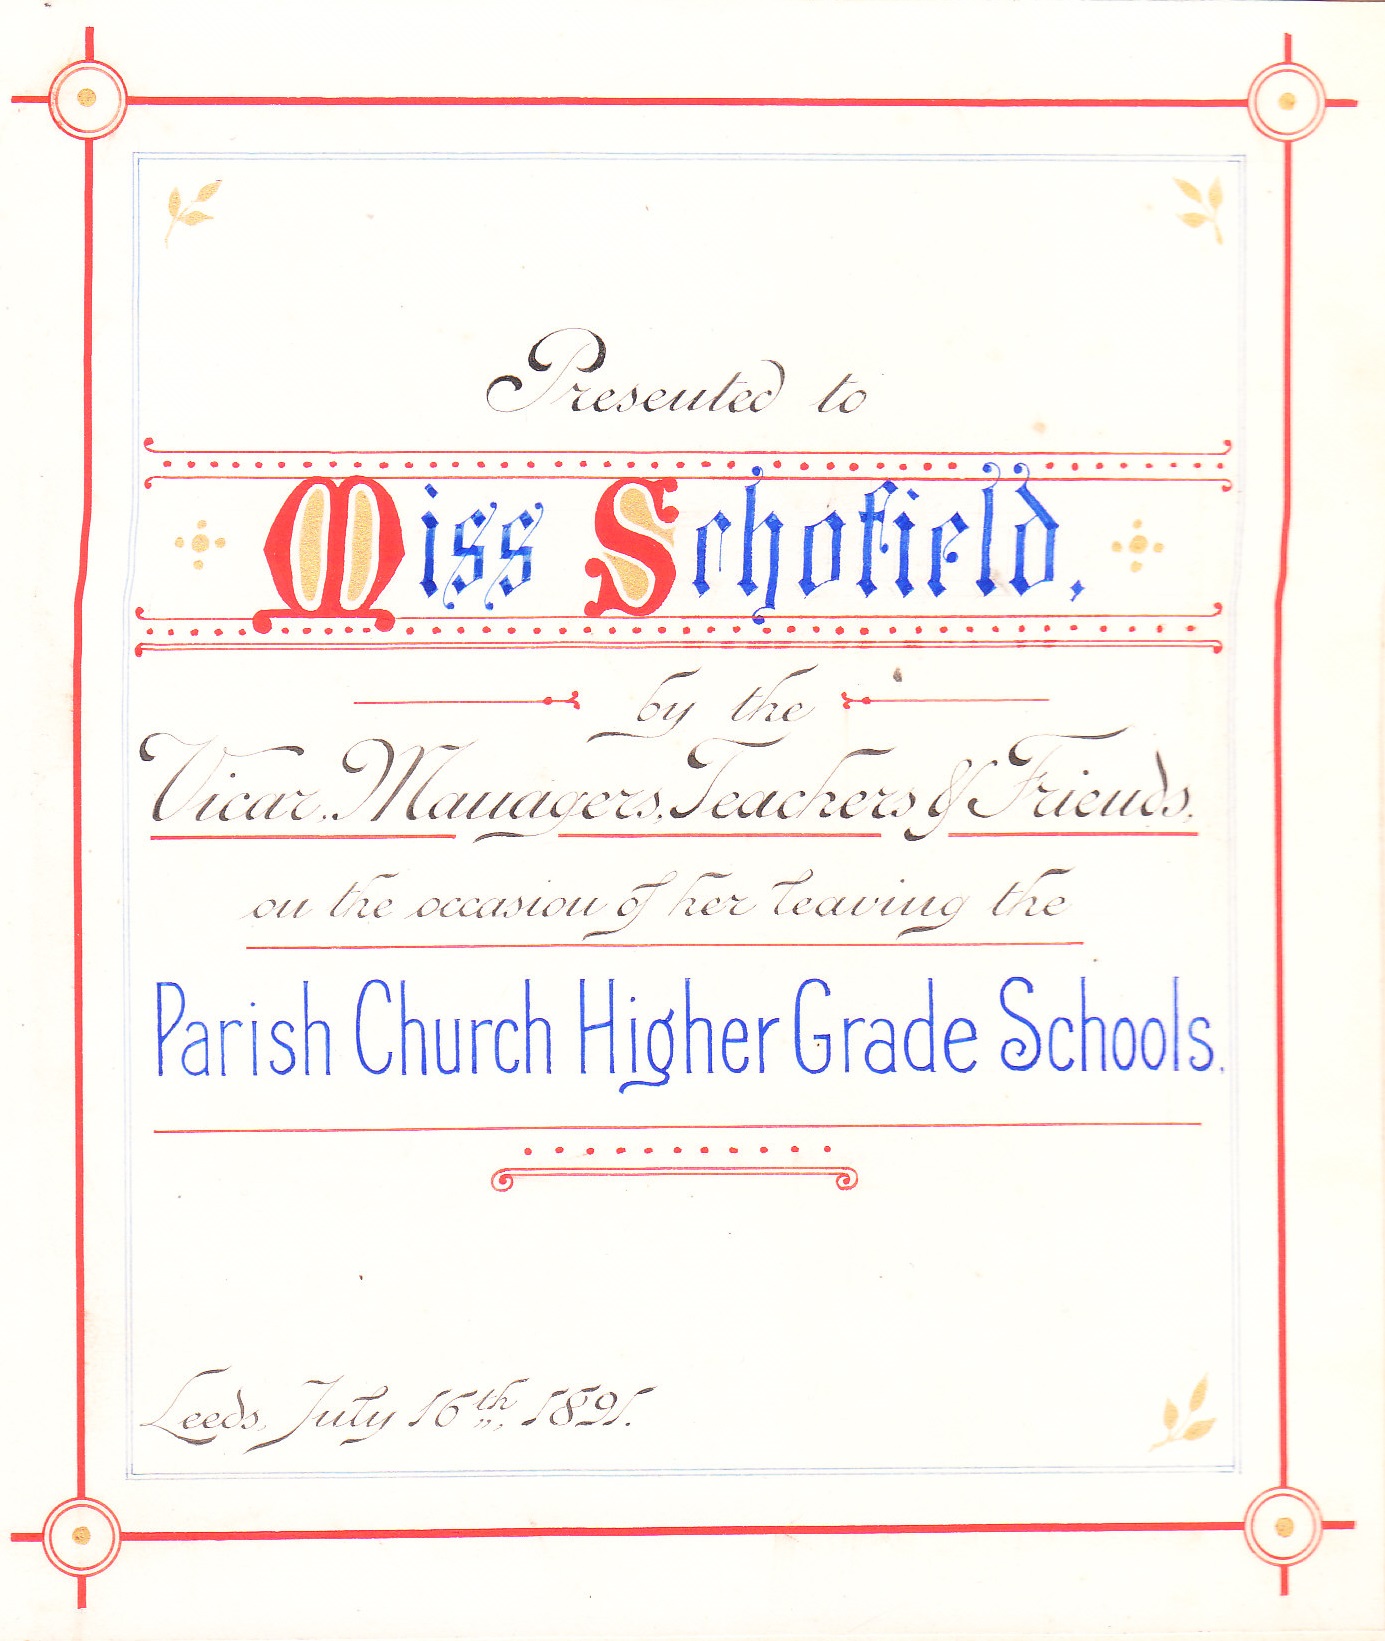 Presented to
Miss Schofield,
by the
Vicar, Managers, Teachers & Friends,
on the occasion of her leaving the
Parish Church Higher Grade Schools.
Leeds, July 16th, 1891.